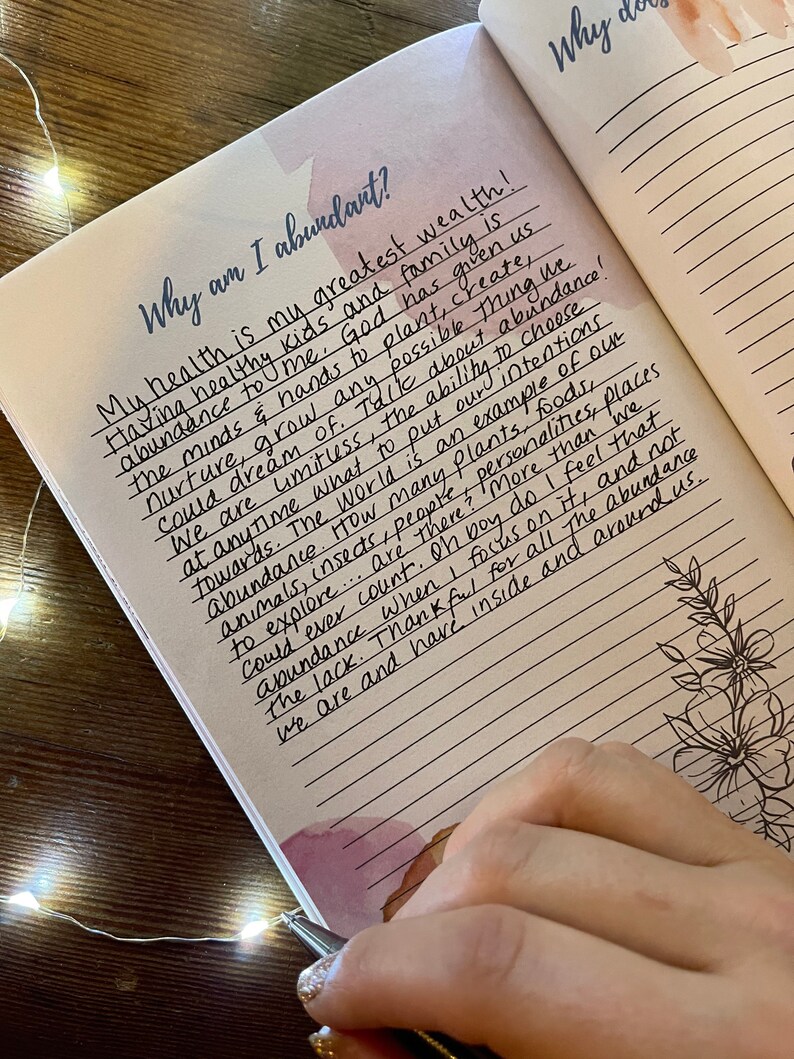 Why am I abundant?
My health is my greatest wealth!
Having healthy kids and family is
abundance to me. God has given us
the minds & hands to plant, create,
nurture, grow any possible thing we
could dream of. Talk about abundance!
We are limitless, the ability to choose
at anytime what to put our intentions
towards. The World is an example of our
abundance. How many plants, foods,
animals, insects, people, personalities, places
to explore... are there? More than we
could ever count. Oh boy do I feel that
abundance when I focus on it, and not
the lack. Thankful for all the abundance
we are and have inside and around us.
Why does